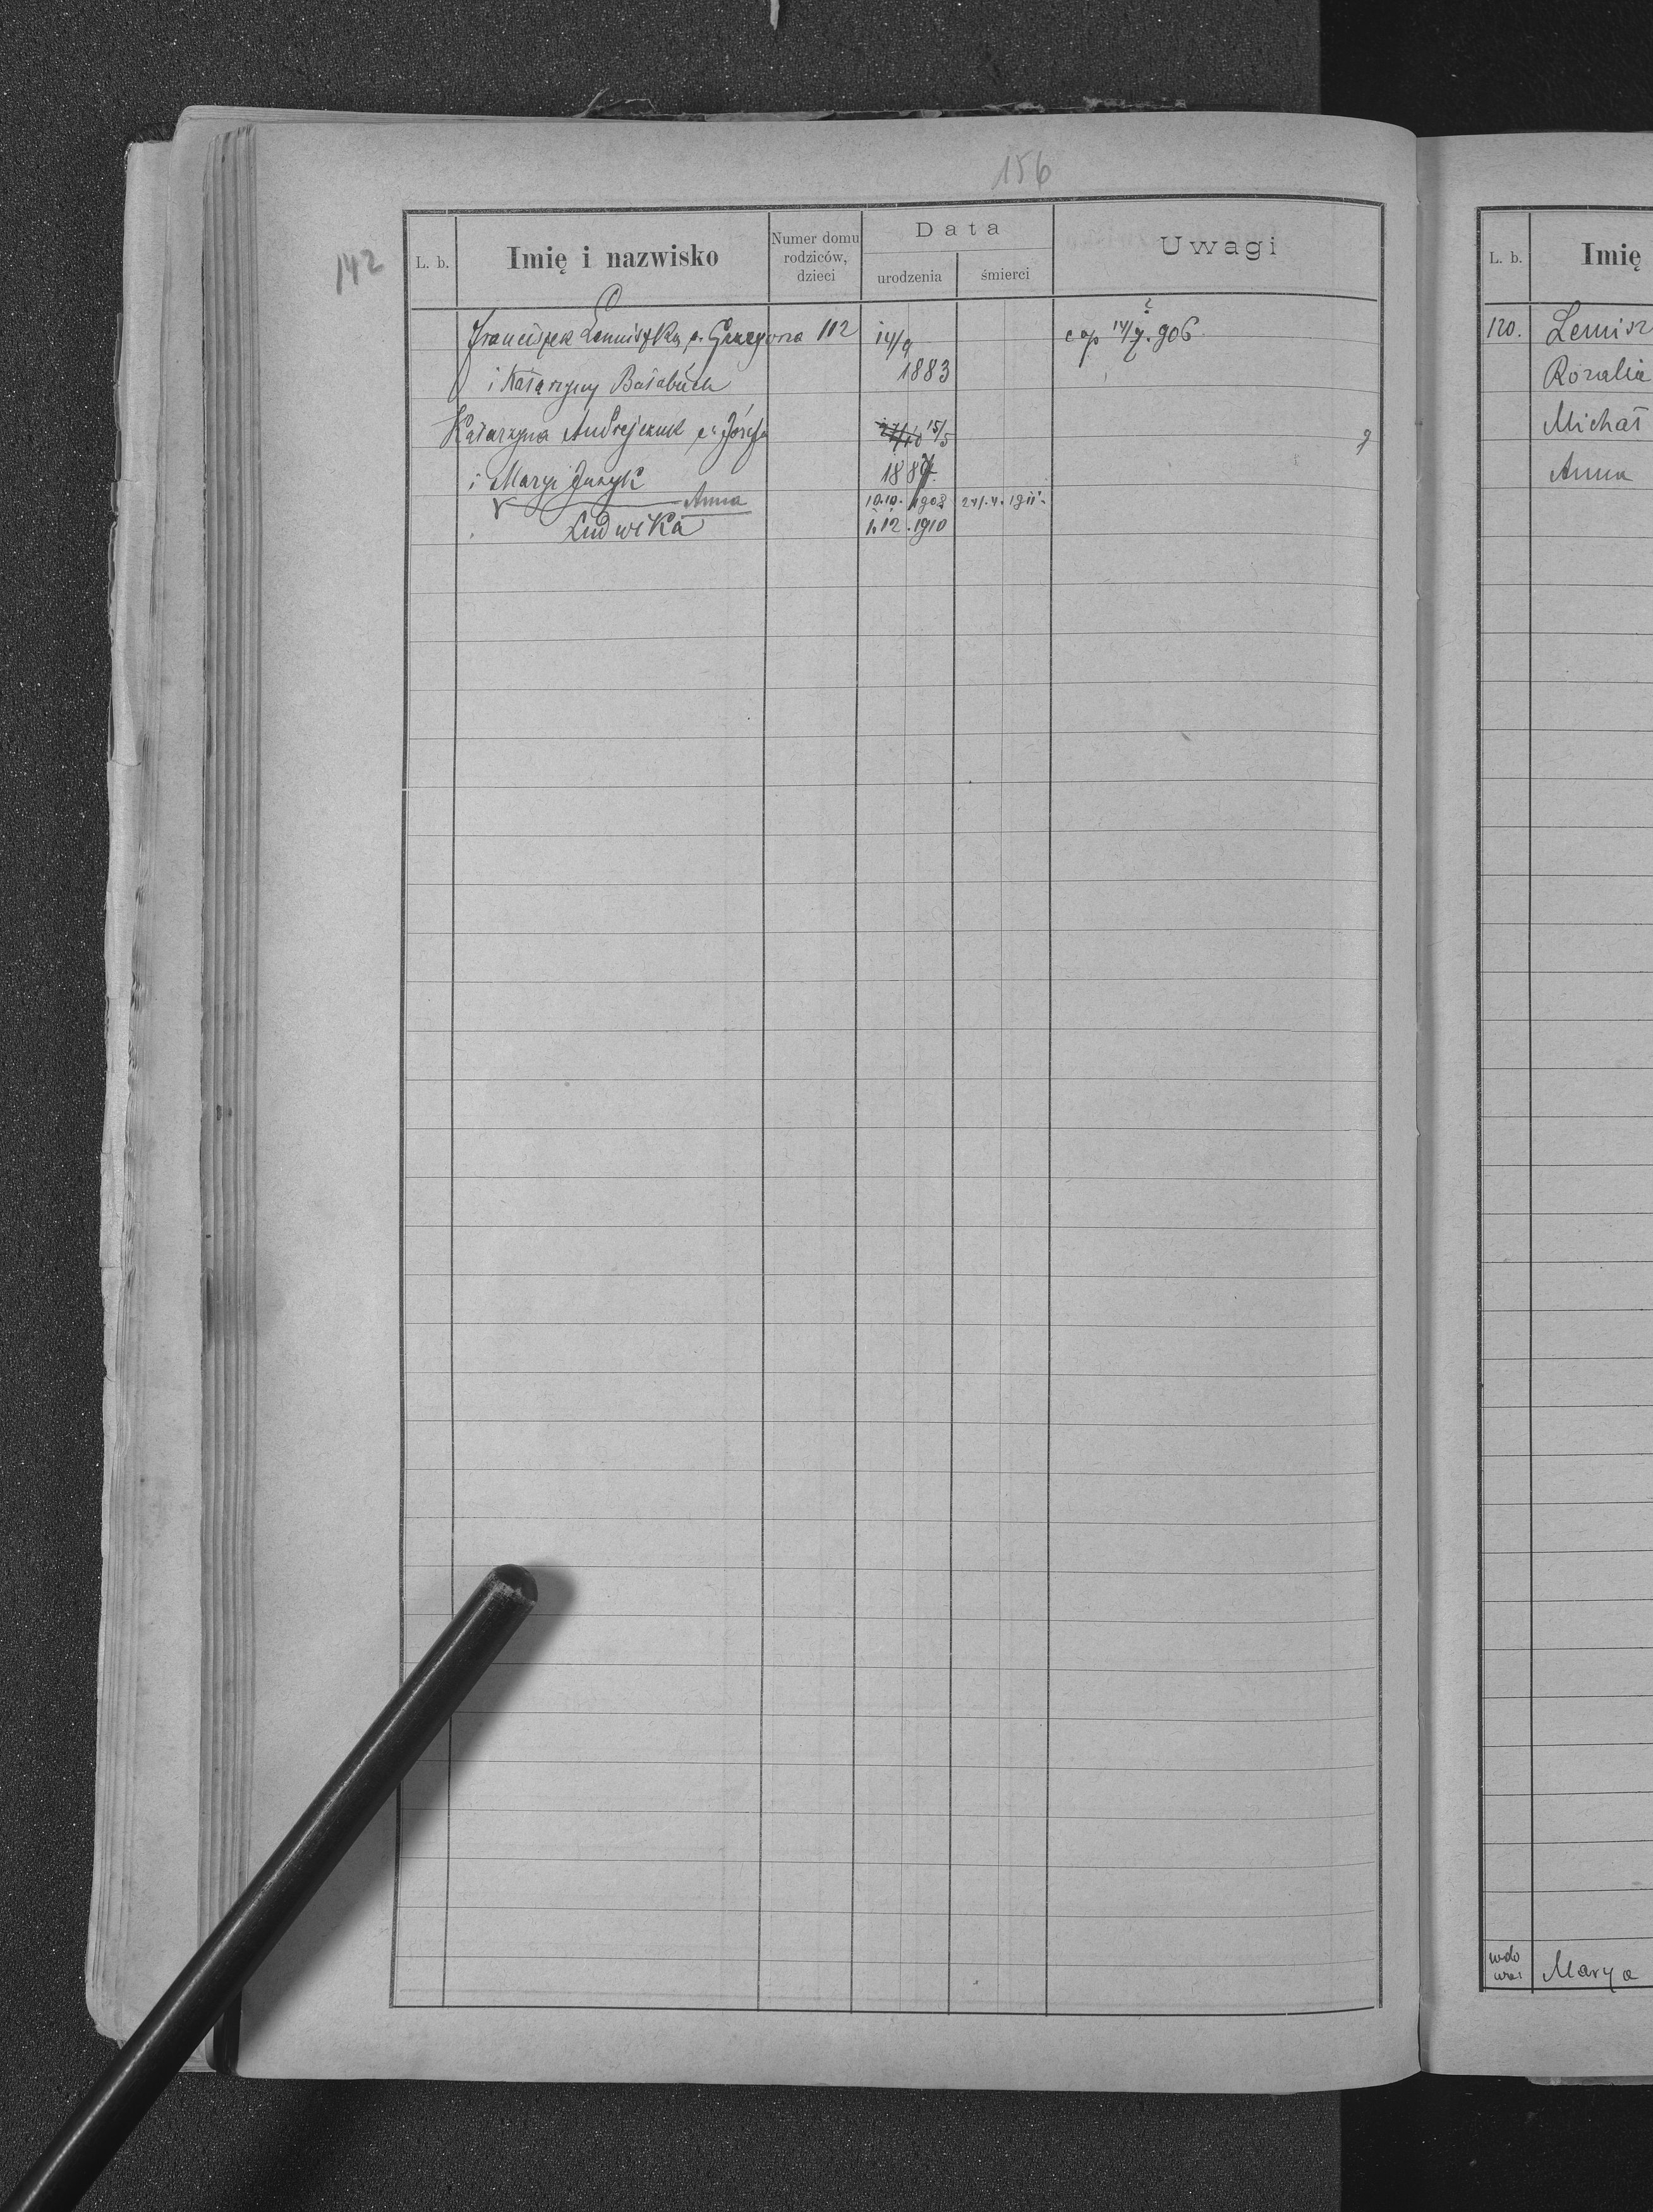 156
142
L. b. Imię i nazwisko Numer domu rodziców, dzieci Data urodzenia śmierci Uwagi
Franciszek Lemiszka s. Grzegorza 112 14/9 cop 14/7. 906
i Katarzyny Bałabuch 1883
Katarzyna Andrejczuk c. Józefa 27/10 15/5
i Maryi Juzyk 1887
Anna 10.10. 1908 24.4. 1911.
Ludwika 1.12.1910
L. b. Imię
120. Lemisz
Rozalia
Michał
Anna
wdo
wa Marya